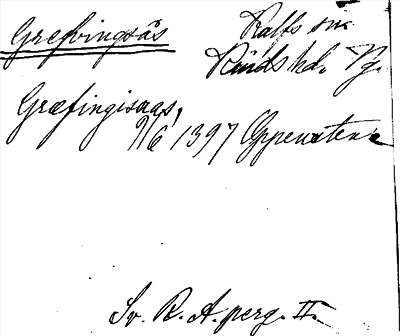 Græfvingsås
Ralfs sn.
Kinds hd. Vg.
Græfingisaas,
1/6 1397 Oppensten
Sv. R. A. perg. II.